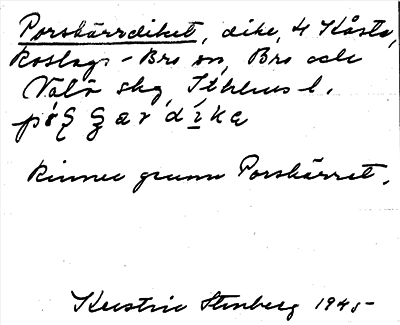 Porskärrdiket, dike, H Kåsta,
Roslags-Bro sn, Bro och
Vätö skg, Sthlms l.

Rinner genom Porskärret.
Kerstin Stenberg 1945